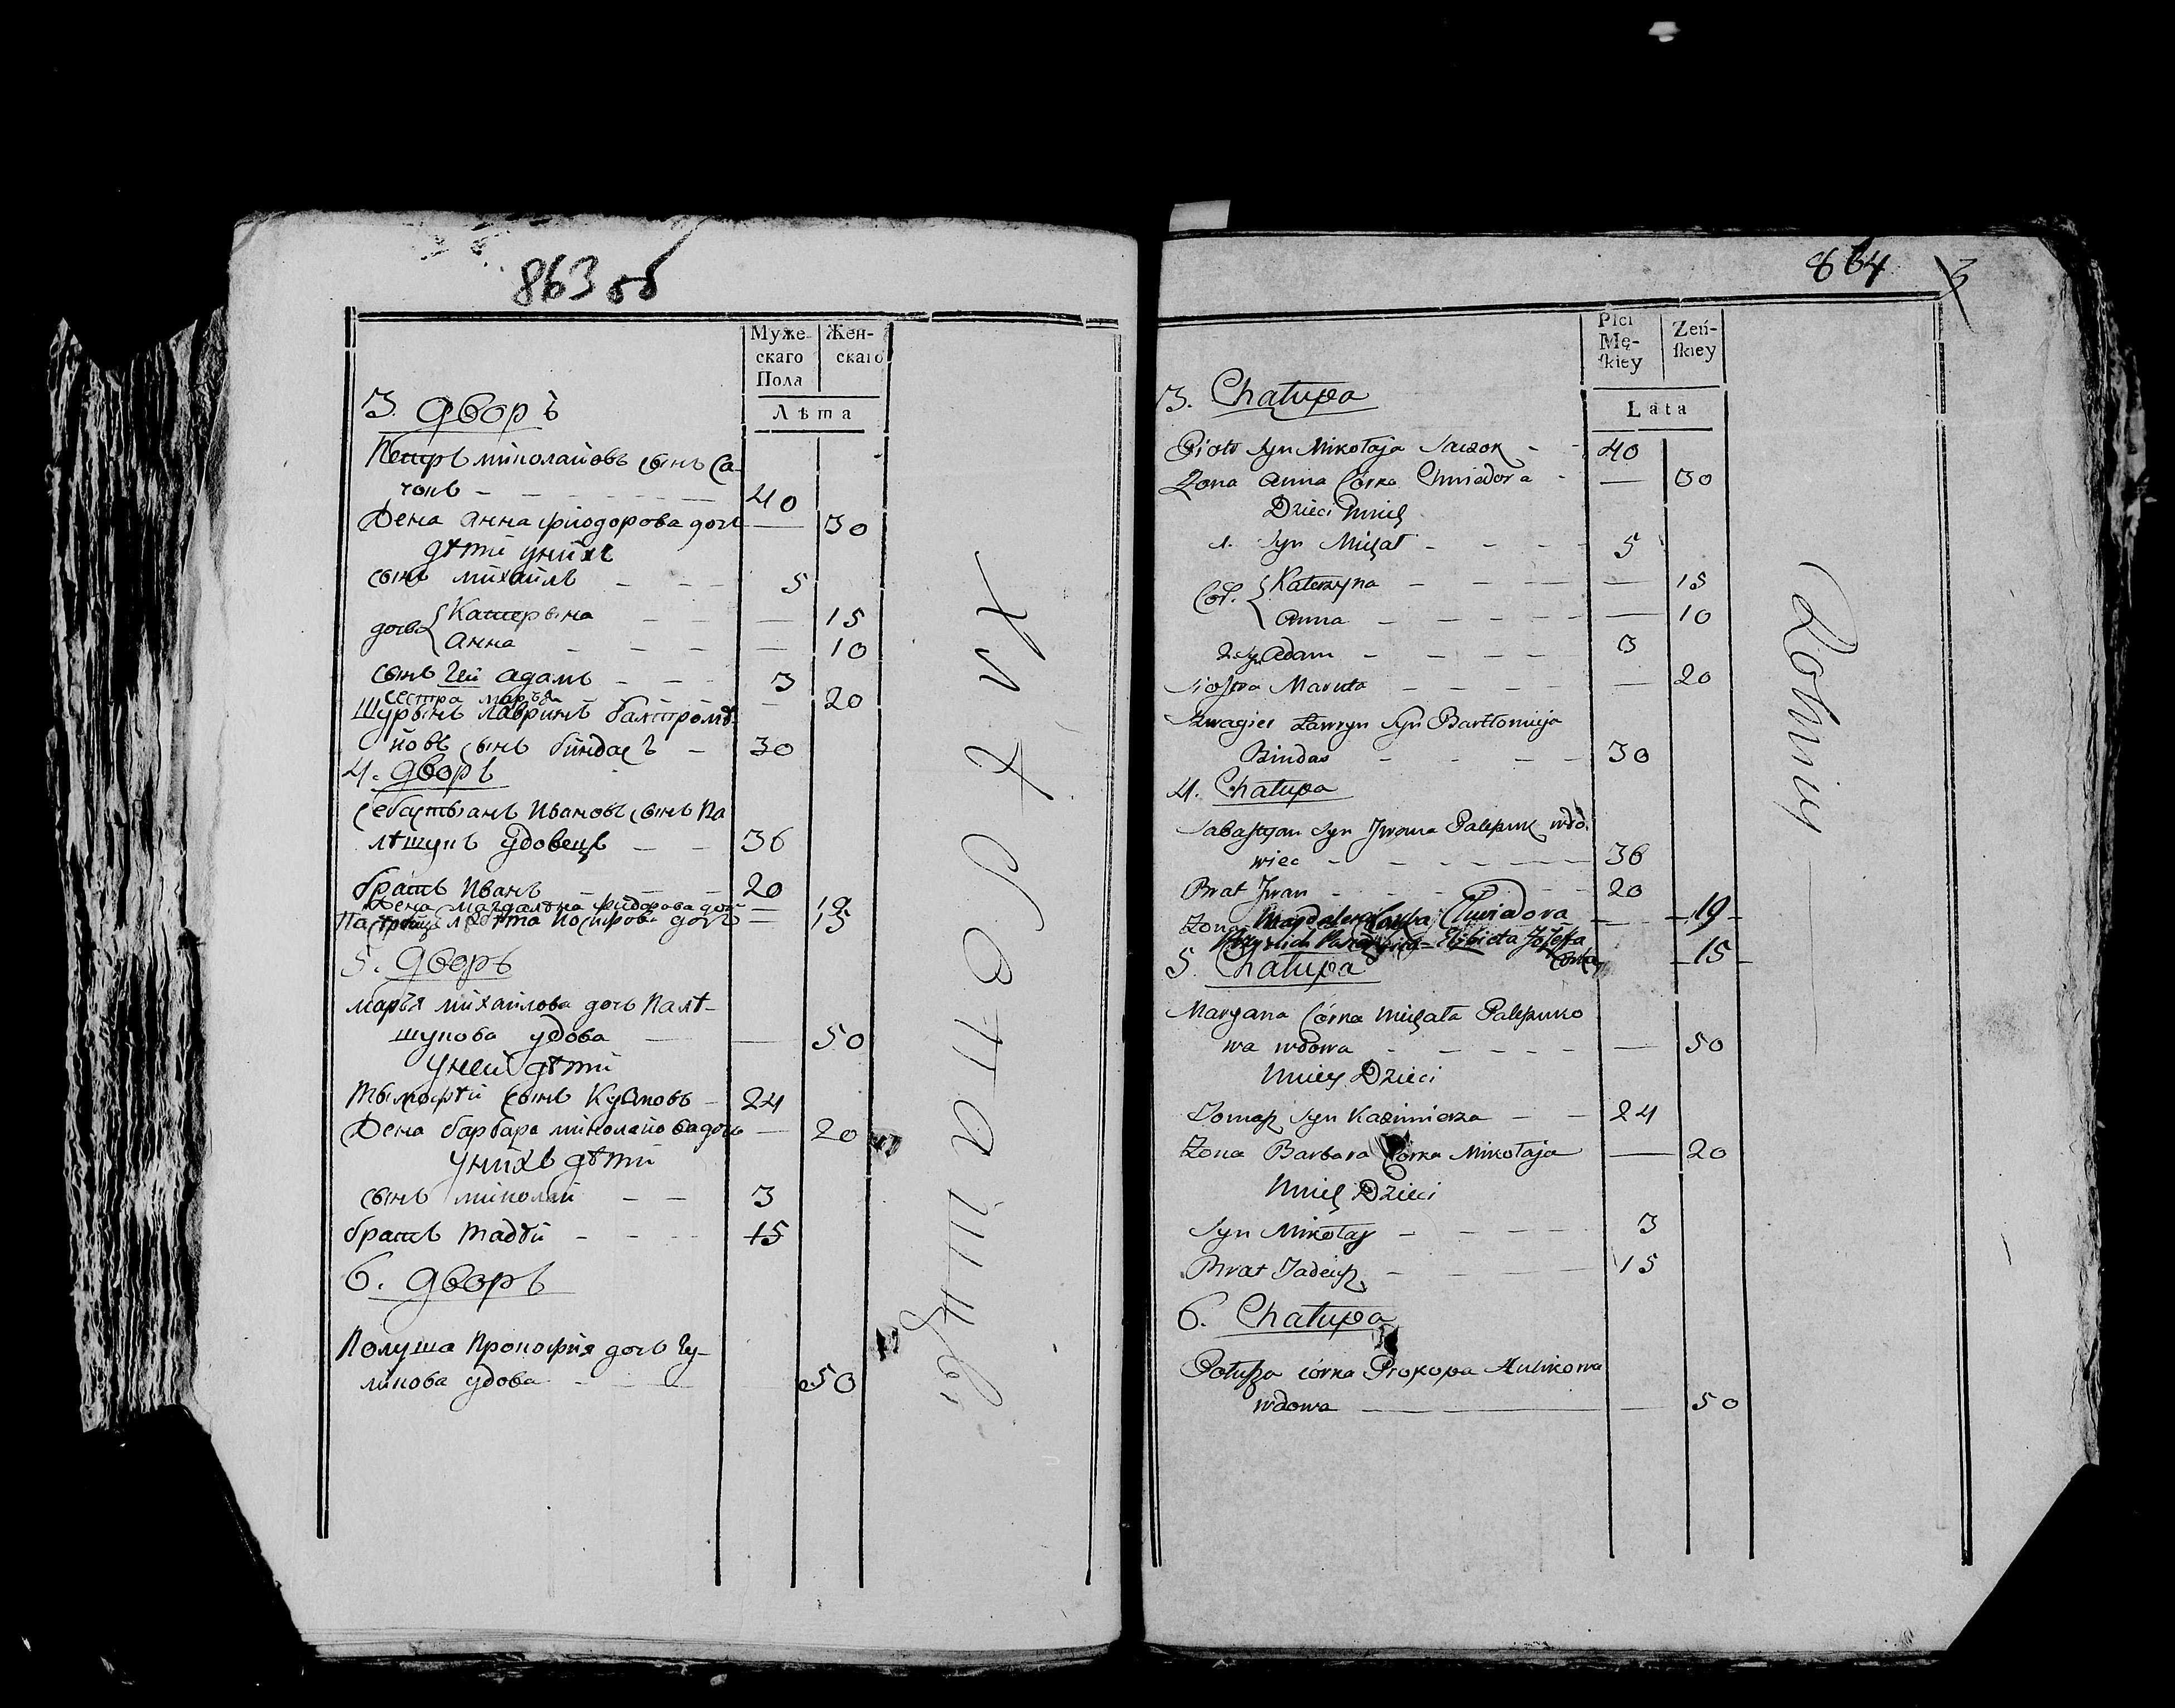 863 об
Муже-
скаго
Пола
Жен-
скаго
Лѣта
3. дворъ
Петръ миколаиовъ сынъ Са-
чокъ - 40
Жена Анна фиодорова дочь — 30
дѣти унихъ
сынъ михаилъ - 5
дочьви Катерына — 15
Анна — 10
сынъ 2ей адамъ - 3
сестра марья — 20
Шурынъ лавринъ
йовъ сынъ биндасъ - 30
4. дворъ
Себастыанъ Ивановъ сынъ Па
лѣшукъ удовецъ - 36
братъ Иванъ - 20
Жена магдалѣна фиодорова дочь — 19
дочь — 15
5. дворъ
марья михаилова дочь Палѣ-
шукова удова — 50
унеи дѣти
сынъ - 24
Жена барбара миколаиова дочь — 20
унихъ дѣти
сынъ миколаи - 3
братъ тадѣи - 15
6. дворъ
Полуша Прокофия дочь Гу-
ликова удова - 50
хлѣ
864
3
Płci
Mę-
skiey
Żeń-
skiey
Lata
3. Chałupa
Piotr Syn Mikołaja Saczok - 40
Zona Anna Córka Chwiedora — 30
Dzieci Unich
1. Syn Michał - 5
Cór. Katerzyna — 15
Anna — 10
2. Sy. Adam - 3
Siostra Maruta — 20
Szwagier Ławryn Syn Bartłomieja
Bindas - 30
4. Chałupa
Sabastyan Syn Jwana Paleszuk wdo-
wiec - 36
Brat Jwan - 20
Zona Magdalena Corka Chwiedora — 19
Elżbieta Jozeffa
Corka 15
5. Chałupa
Maryana Córka Michała Paleszuko
wa wdowa — 50
Uniey Dzieci
Tomasz Syn Kazimierza - 24
Zona Barbara Córka Mikołaja — 20
Unich Dzieci
Syn Mikołay - 3
Brat Tadeusz - 15
6. Chałupa
Połusza córka Prokopa Hulikowa
wdowa — 50
Rolnicy